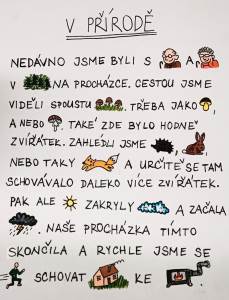 V PŘÍRODĚ
NEDÁVNO JSME BYLI S A
V NA PROCHÁZCE. CESTOU JSME
VIDĚLI SPOUSTU , TŘEBA JAKO ,
A NEBO . TAKÉ ZDE BYLO HODNĚ
ZVÍŘÁTEK. ZAHLEDLI JSME , ,
NEBO TAKY A URČITĚ SE TAM
SCHOVÁVALO DALEKO VÍCE ZVÍŘÁTEK.
PAK ALE ZAKRYLY A ZAČALA
. NAŠE PROCHÁZKA TÍMTO
SKONČILA A RYCHLE JSME SE
SCHOVAT KE .